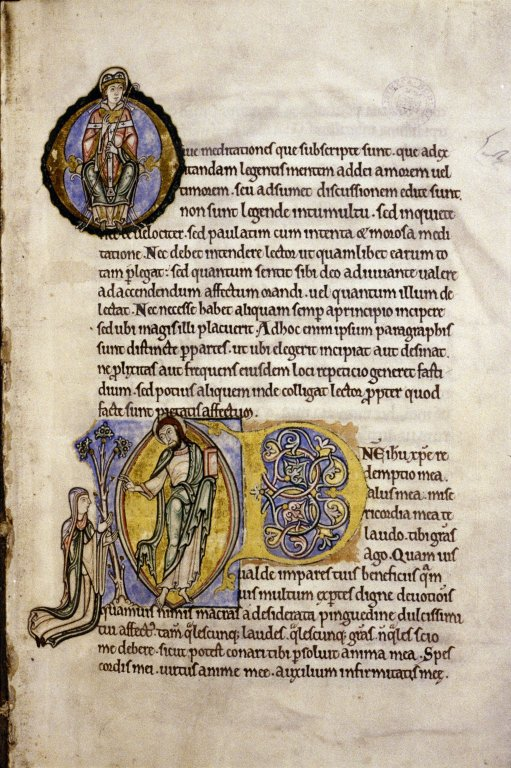 que meditationes que subscripte sunt. que ad ex
citandam legentis mentem ad dei amorem uel
timorem. seu ad sui met discussionem edite sunt
non sunt legende in tumultu. sed in quiete
nec uelociter. sed paulatim cum intenta & morosa medi
tatione. Nec debet intendere lector ut quamlibet earum to
tam plegat: sed quantum sentit sibi deo adiuuante ualere
ad accendendum affectum orandi. uel quantum illum de
lectat. Nec necesse habet aliquam semp a principio incipere
sed ubi magis illi placuerit. Ad hoc enim ipsum paragraphis
sunt distincte p partes. ut ubi elegerit incipiat aut desinat.
ne plixitas aut frequens eiusdem loci repeticio generet fasti
dium. sed potius aliquem inde colligat lector ppter quod
facte sunt pietatis affectum.
D
NE ihu xpe re
demptio mea.
salus mea. mise
ricordia mea te
laudo. tibi gras
ago. Quam uis
ualde impares tuis beneficiis qm
uis multum exptes digne deuotionis
quamuis nimis macras a desiderata pinguedine dulcissimi
tui affect tam qlescunq laudes. qlescunq gras n qles scio
me debere. sicut potest conari tibi psoluit anima mea. Spes
cordis mei. uirtus anime mee. auxilium infirmitatis mee.